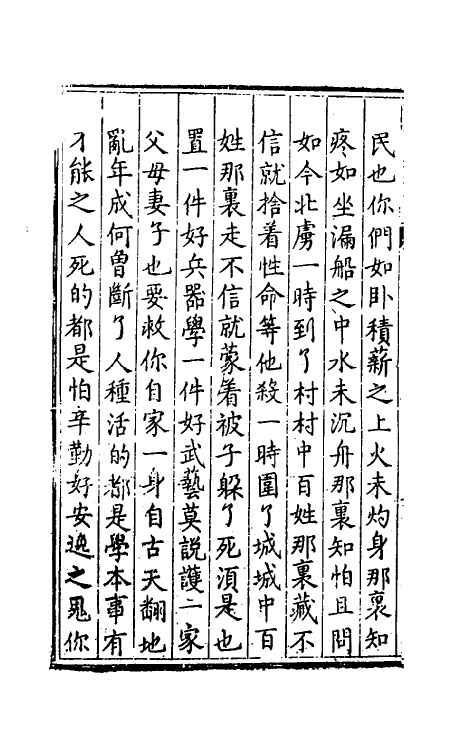 民也你們如卧積薪之上火未灼身那裏知
疼如坐漏船之中水未沉舟那裏知怕且問
如今北虜一時到了村村中百姓那裏藏不
信就捨着性命等他殺一時圍了城城中百
姓那裏走不信就蒙着被子躱了死須是也
置一件好兵器學一件好武藝莫說護二家
父母妻子也要救你自家一身自古天翻地
亂年成何曾斷了人種活的都是學本事有
才能之人死的都是怕辛勤好安逸之鬼你